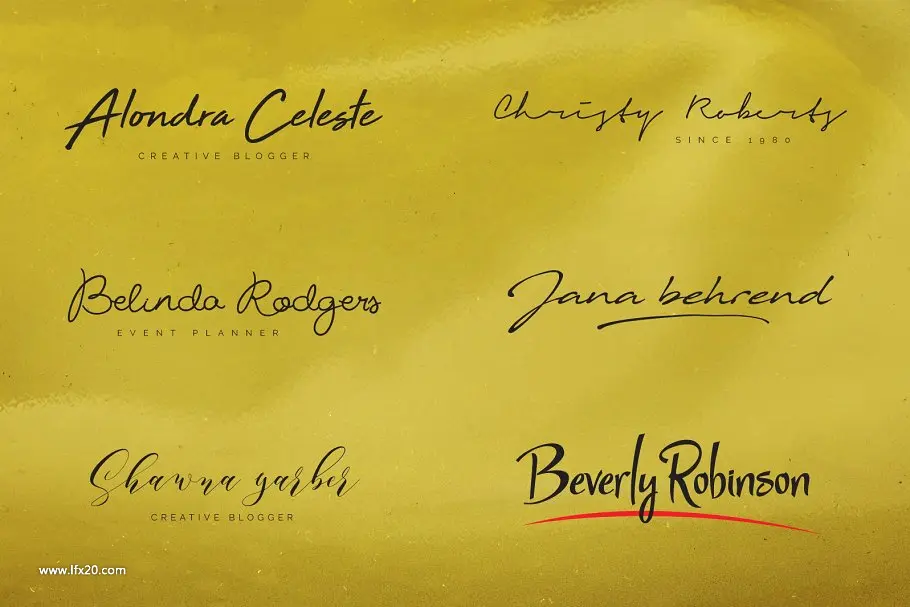 Alondra Celeste
CREATIVE BLOGGER
Christy Roberts
SINCE 1980
Belinda Rodgers
EVENT PLANNER
Jana behrend
Shawna garber
CREATIVE BLOGGER
Beverly Robinson
www.lfx20.com